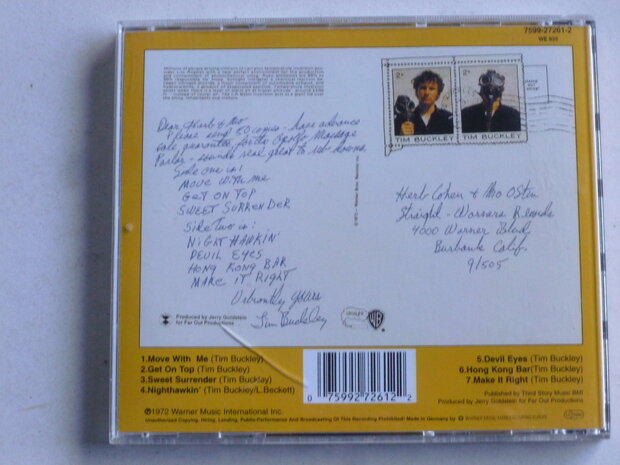 7599-27261-2
WE 835
2¢
2¢
TIM BUCKLEY
TIM BUCKLEY
Dear Herb & Mo
Please send 50 copies - hope advance
sale guarantee for the Apollo Massage
Parlor - sounds real great to
Side one is:
MOVE WITH ME
GET ON TOP
SWEET SURRENDER
Side two is:
NIGHT HAWKIN'
DEVIL EYES
HONG KONG BAR
MAKE IT RIGHT
Vibrantly yours
Tim Buckley
Herb Cohen & Mo Osten
Straight - Warners Records
4000 Warner Blvd
Burbank Calif.
91505
©1972 - Warner Bros. Records Inc.
Produced by Jerry Goldstein
for Far Out Productions
straight
WB
1.Move With Me (Tim Buckley)
2.Get On Top (Tim Buckley)
3.Sweet Surrender (Tim Buckley)
4.Nighthawkin' (Tim Buckley/L.Beckett)
5.Devil Eyes (Tim Buckley)
6.Hong Kong Bar(Tim Buckley)
7.Make It Right (Tim Buckley)
Published by Third Story Music BMI
Produced by Jerry Goldstein for Far Out Productions
0 75992 72612 2
℗1972 Warner Music International Inc.
Unauthorized Copying, Hiring, Lending, Public-Performance And Broadcasting Of This Recording Prohibited! Made in Germany by WARNER MUSIC MANUFACTURING EUROPE